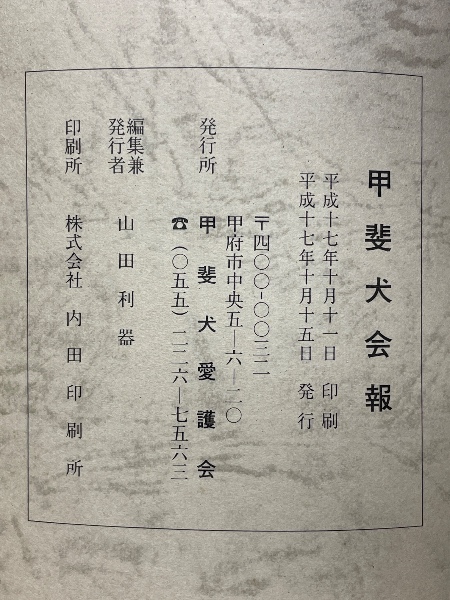 甲斐犬会報
平成十七年十月十一日 印刷
平成十七年十月十五日 発行
〒四〇〇-〇〇三二
甲府市中央五―六―二〇
発行所 甲斐犬愛護会
☎(〇五五)二二六―七五六三
編集兼発行者 山田利器
印刷所 株式会社 内田印刷所